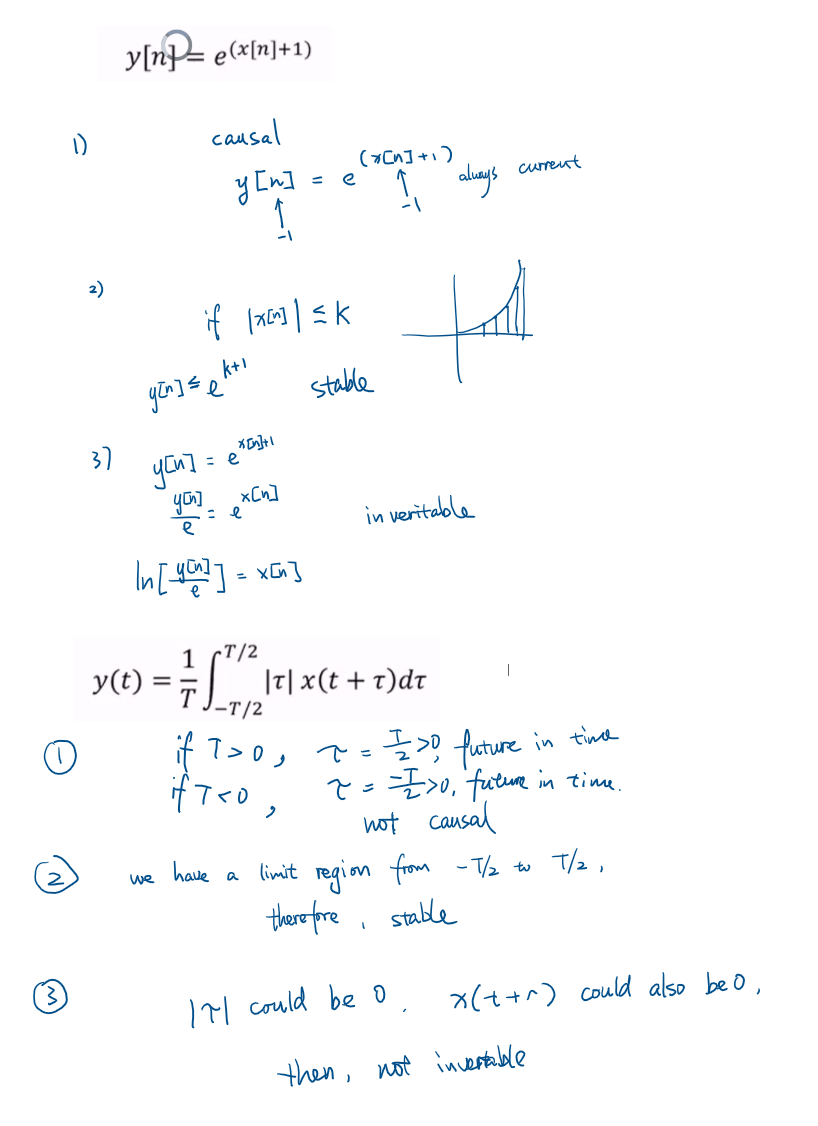 y[n] = e^(x[n]+1)
1) causal
y[n] = e^(x[n]+1) always current
↑ -1 ↑ -1
2)
if |x[n]| ≤ k
y[n] ≤ e^k+1 stable
3) y[n] = e^x[n]+1
y[n]/e = e^x[n] inveritable
ln[y[n]/e] = x[n]
y(t) = 1/T ∫_-T/2^T/2 |τ| x(t + τ)dτ
① if T>0, τ = T/2 >0, future in time
if T<0, τ = -T/2 >0, future in time.
not causal
② we have a limit region from -T/2 to T/2,
therefore, stable
③ |τ| could be 0. x(t+τ) could also be 0,
then, not invertable